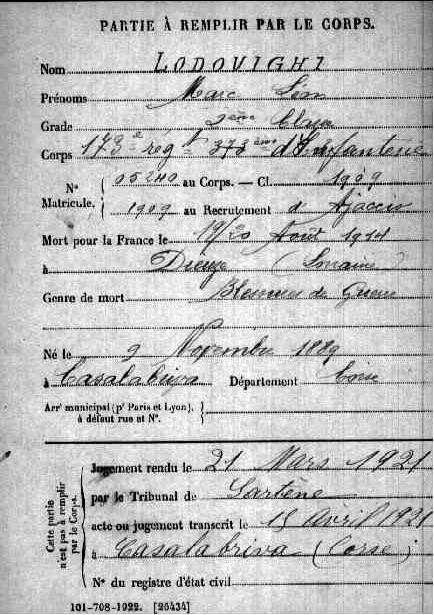 PARTIE À REMPLIR PAR LE CORPS.
Nom LODOVIGHI
Prénoms Marc
Grade 2ème Classe
Corps 173e rég t 373ème d'Infanterie
N° Matricule. { 05240 au Corps. — Cl. 1909
1909 au Recrutement à Ajaccio
Mort pour la France le 19/20 Août 1914
à Dieuze (Lorraine)
Genre de mort Blessures de Guerre
Né le 9 Novembre 1889
à Casalabriva Département Corse
Arrt municipal (pr Paris et Lyon), à défaut rue et N°. }
Cette partie n'est pas à remplir par le Corps.
Jugement rendu le 21 Mars 1921
par le Tribunal de Sartène
acte ou jugement transcrit le 15 Avril 1921
à Casalabriva (Corse)
N° du registre d'état civil
101-708-1922. [26434]